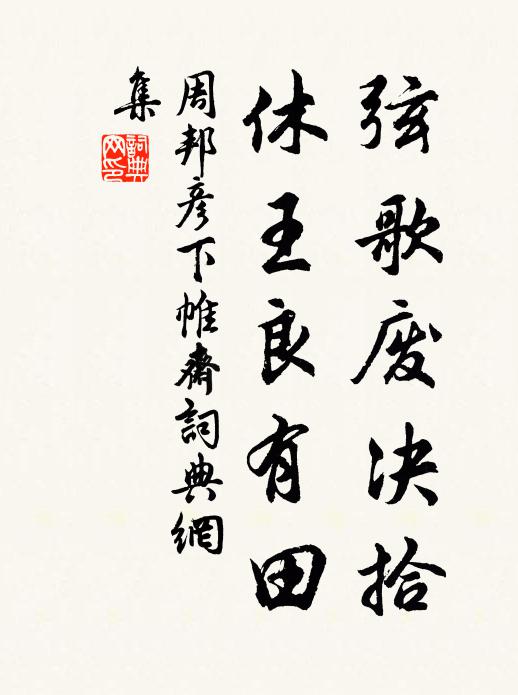 弦歌废决拾
休王良有田
周邦彦下帷齋詞典網
集
詞典
网印